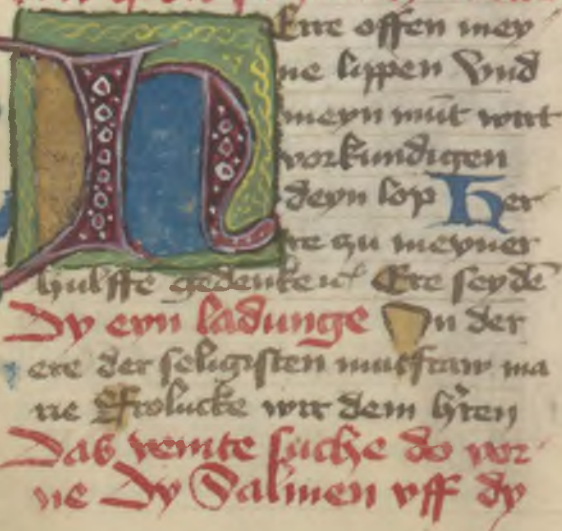 HErre offen mey
ne lippen Vnd
meyn mut wirt
vorkundigen
deyn lop Her
re zu meyner
hulffe gedenke etc Ere sey dē
Dy eyn ladunge In der
ere der seligisten iucfraw ma
rie Frolucke wir dem h'ren
Das venite suche do vor
ne Dy Salmen vff dy